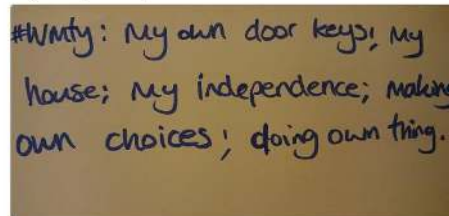 #WMfy: My own door keys; My
house; My independence; making
own choices; doing own thing.